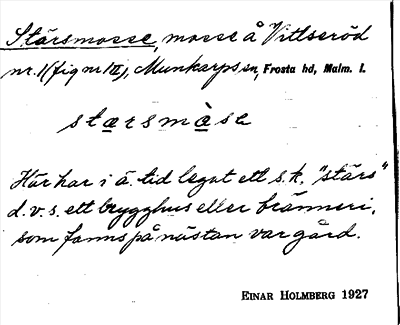 Stärsmosse, mosse å Vitlseröd
nr. 1 (fig nr III), Munkarps sn, Frosta hd, Malm. l.
stærsmàse
Här har i ä. tid legat ett s.k. "stärs"
d.v.s. ett brygghus eller bränneri,
som fanns på nästan var gård.
EINAR HOLMBERG 1927